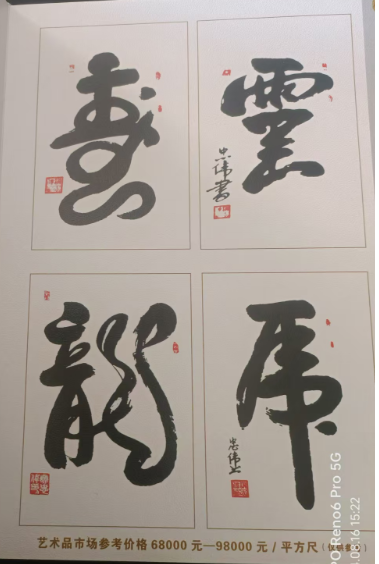 壽
忠偉書
龍
虎
忠偉
艺术品市场参考价格 68000 元—98000 元 / 平方尺
PO Reno6 Pro 5G
15:22